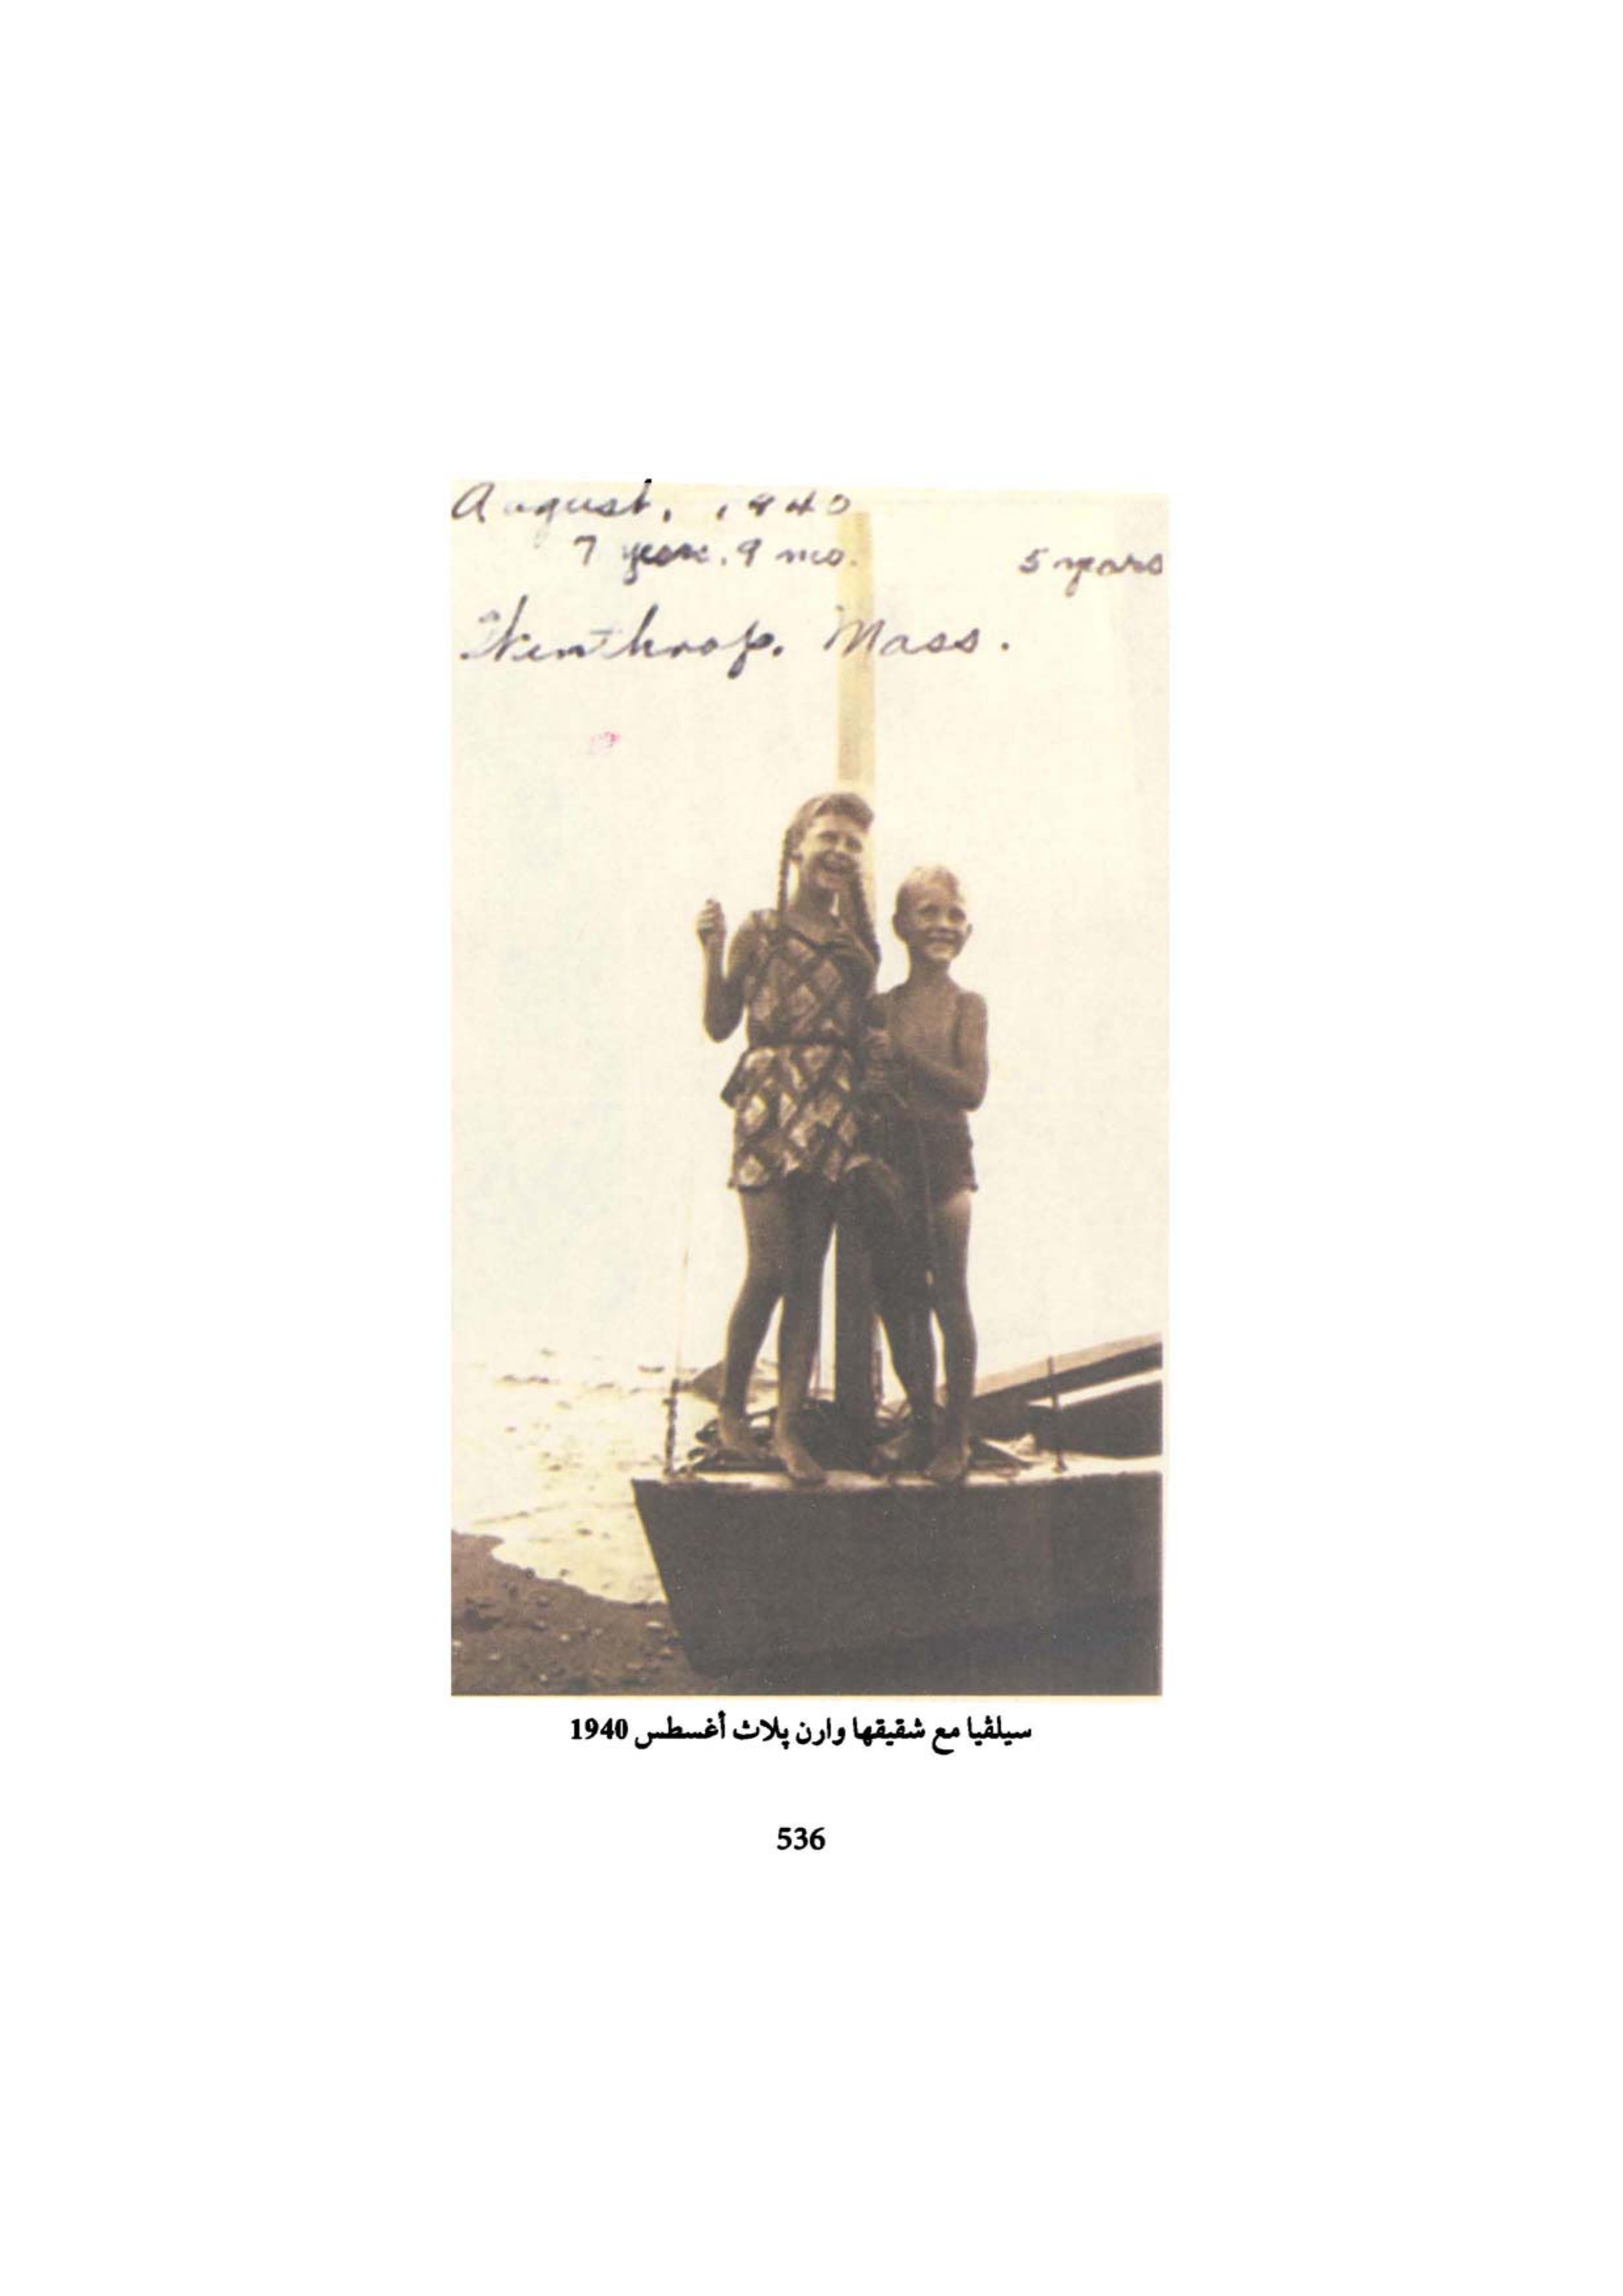 August, 1940
7 years, 9 mo. 5 years
Winthrop, Mass.
سيلڤيا مع شقيقها وارن پلاث أغسطس 1940
536